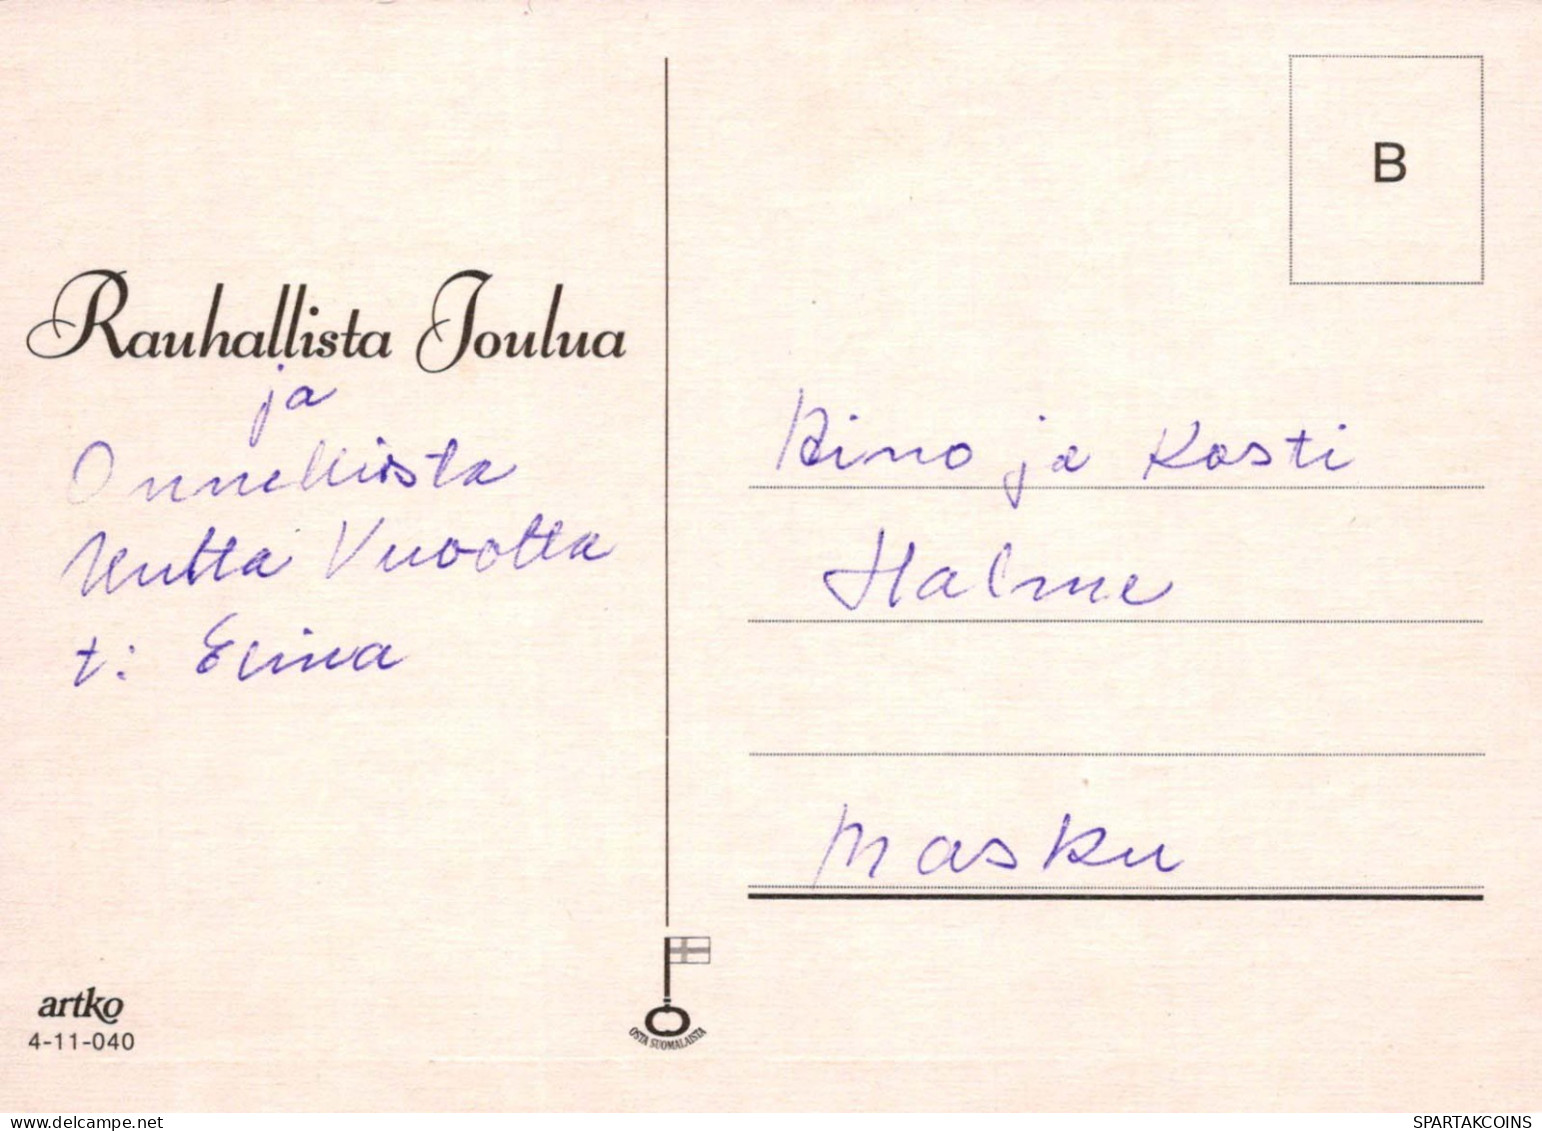 Rauhallista Joulua
ja
Onnellista
Uutta Vuotta
t: Elina
B
Aino ja Kosti
Halme
Masku
artko
4-11-040
OSTA SUOMALAISTA
delcampe.net
SPARTAKCOINS